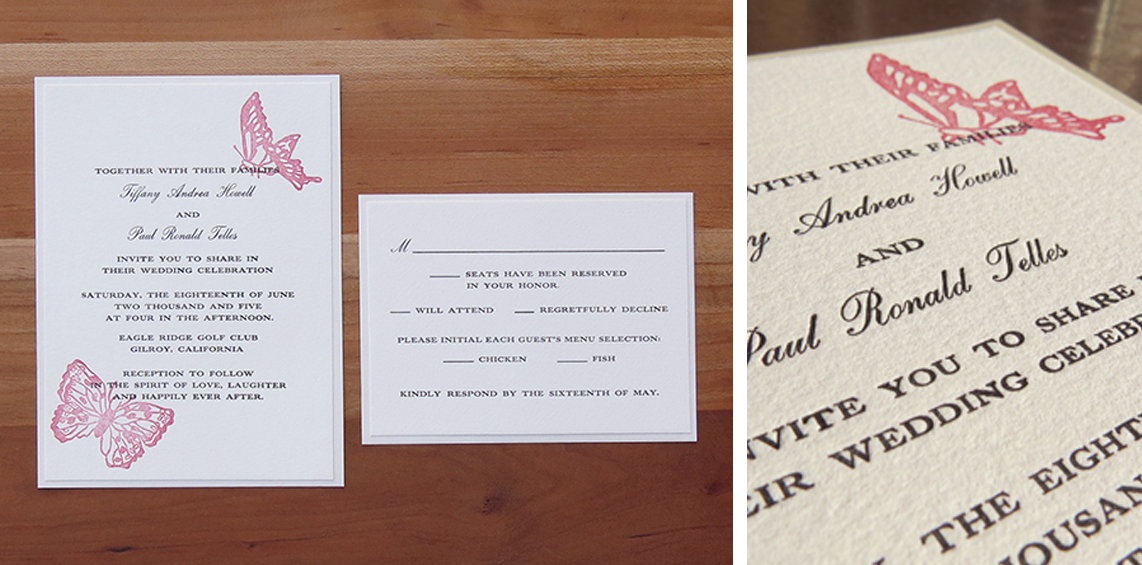 TOGETHER WITH THEIR FAMILIES
Tiffany Andrea Howell
AND
Paul Ronald Telles
INVITE YOU TO SHARE IN
THEIR WEDDING CELEBRATION
SATURDAY, THE EIGHTEENTH OF JUNE
TWO THOUSAND AND FIVE
AT FOUR IN THE AFTERNOON.
EAGLE RIDGE GOLF CLUB
GILROY, CALIFORNIA
RECEPTION TO FOLLOW
IN THE SPIRIT OF LOVE, LAUGHTER
AND HAPPILY EVER AFTER.
M
SEATS HAVE BEEN RESERVED
IN YOUR HONOR.
WILL ATTEND REGRETFULLY DECLINE
PLEASE INITIAL EACH GUEST'S MENU SELECTION:
CHICKEN FISH
KINDLY RESPOND BY THE SIXTEENTH OF MAY.
WITH THEIR FAMILIES
Andrea Howell
AND
Paul Ronald Telles
INVITE YOU TO SHARE
WEDDING
THE